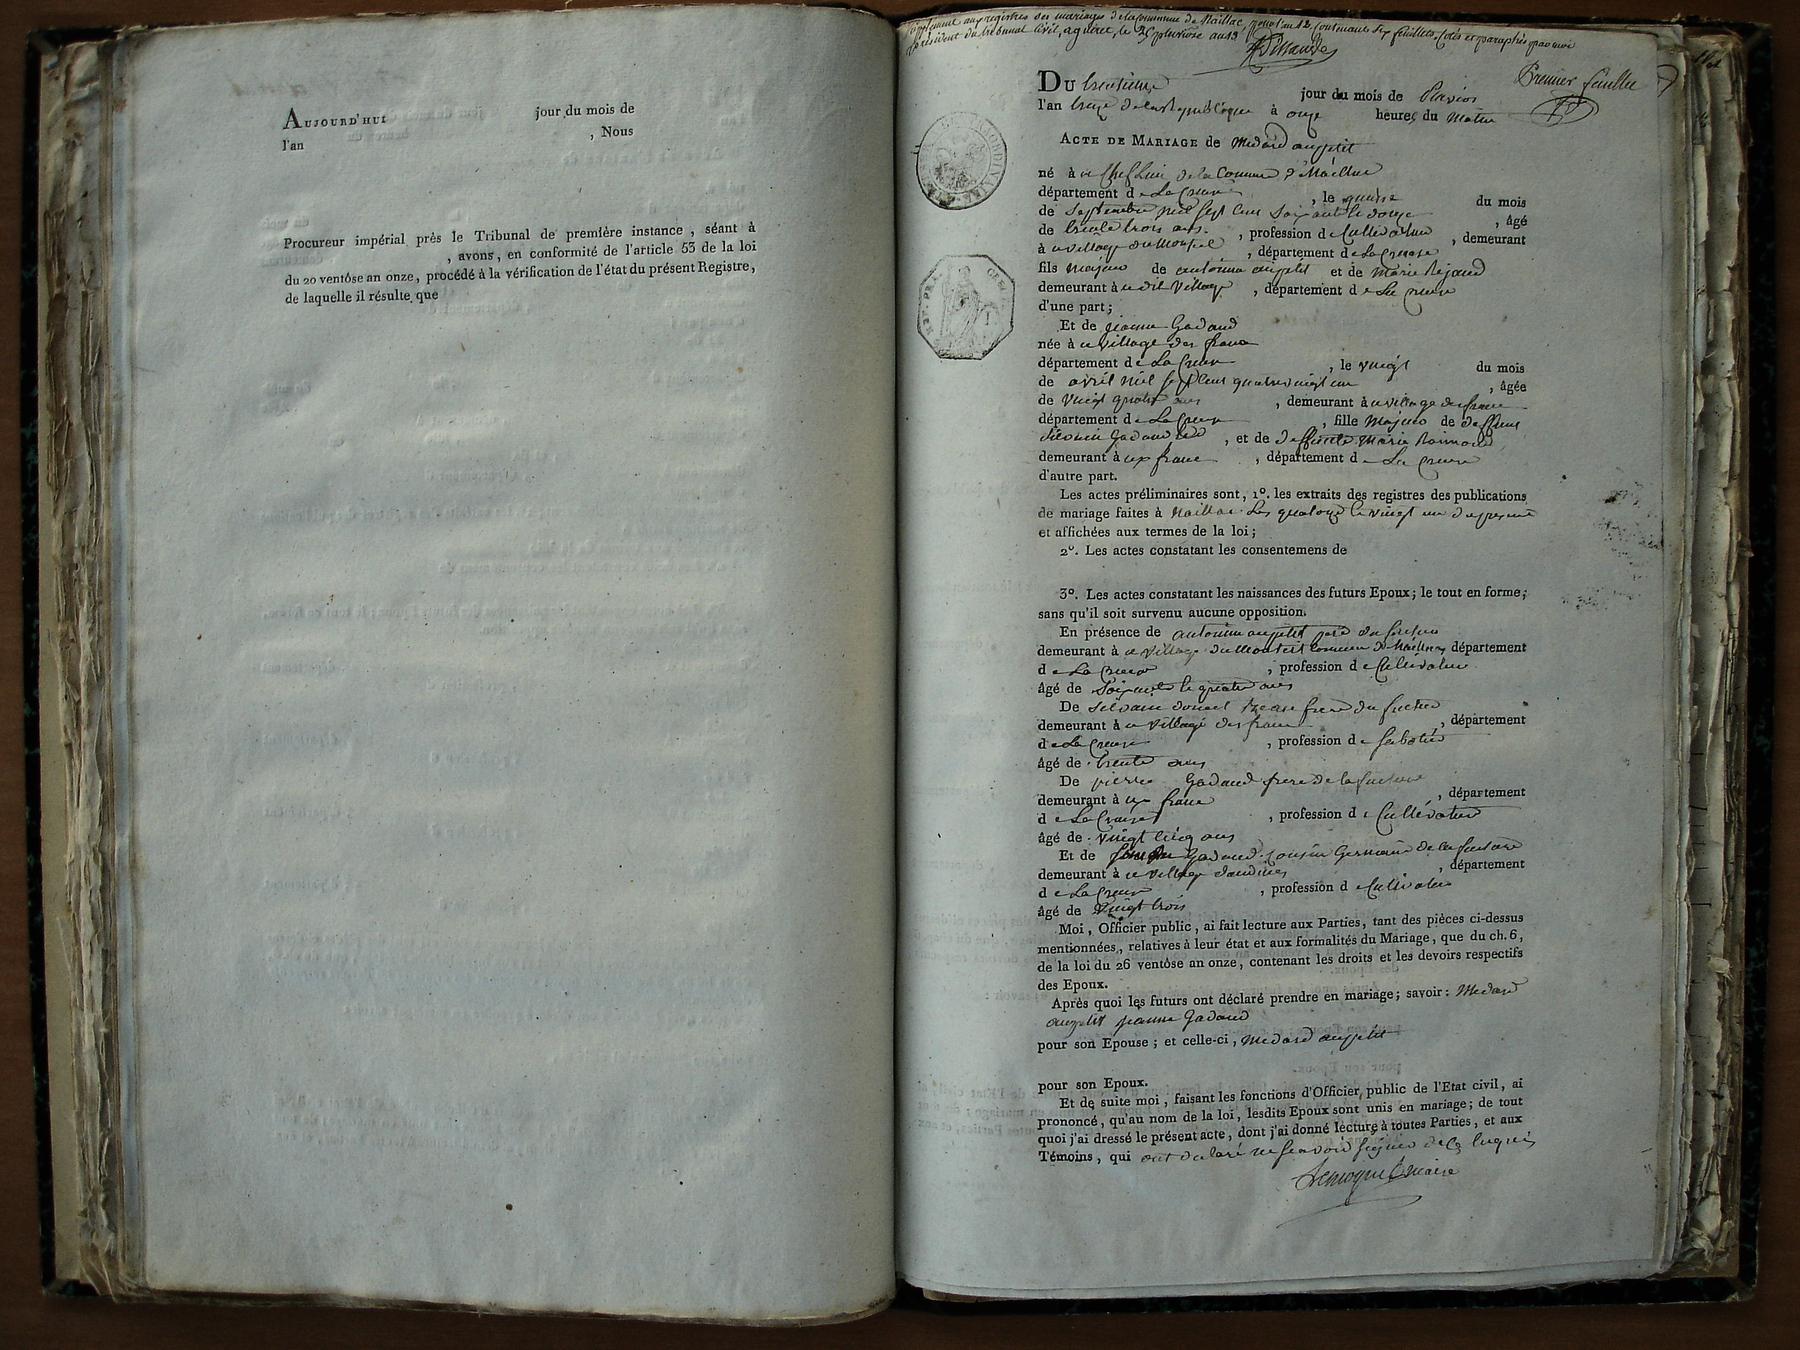 AUJOURD'HUI jour du mois de
l'an , Nous
Procureur impérial près le Tribunal de première instance , séant à
, avons, en conformité de l'article 53 de la loi
du 20 ventôse an onze, procédé à la vérification de l'état du présent Registre,
de laquelle il résulte que
Supplement aux registres des mariages de la Commune de Naillac, pour l'an 12 Contenants Six feuillets. Cotés et paraphés par moi
président du tribunal Civil, a guéret, le pluviose an 13
Premier feuillet
DU trentieme jour du mois de Pluvios
l'an treize de la Republique à onze heures du Matin
ACTE DE MARIAGE de Medard aupetit
né à Chef Lieu de la Commune de Naillac
département de La Creuse , le quinse du mois
de Septembre mil sept cent Soixante et douze , âgé
de trente trois ans. , profession de Cultivateur , demeurant
à u village du Monteil , département de La Creuse
fils majeur de antoinne aupetit et de Marie
demeurant à u dit Village , département de La Creuse
d'une part;
Et de jeanne Gadaud
née à u village des frana
département de La Creuse , le vingt du mois
de avril mil sept cent quatre vingt un , âgée
de vingt quatre ans , demeurant à u village des
département de La Creuse , fille Majeur de deffunt
Silvain Gadaud , et de deffunte Marie
demeurant à ux , département de La Creuse
d'autre part.
Les actes préliminaires sont, 1°. les extraits des registres des publications
de mariage faites à Naillac Les quatorze et vingt un du present
et affichées aux termes de la loi;
2°. Les actes constatant les consentemens de
3°. Les actes constatant les naissances des futurs Epoux; le tout en forme;
sans qu'il soit survenu aucune opposition.
En présence de antoinne aupetit pere du futeur
demeurant à u village du Monteil Commune de Naillac département
de La Creuse , profession de Cultivateur
âgé de Soixante et quatre ans
De Silvain frere du futeur
demeurant à u village des , département
de La Creuse , profession de Sabotier
âgé de trente ans
De pierre Gadaud frere de la future
demeurant à ux , département
de La Creuse , profession de Cultivateur
âgé de vingt cinq ans
Et de Gadaud Cousin Germain de la future
demeurant à u village , département
de La Creuse , profession de Cultivateur
âgé de Vingt trois
Moi, Officier public, ai fait lecture aux Parties, tant des pièces ci-dessus
mentionnées, relatives à leur état et aux formalités du Mariage, que du ch. 6,
de la loi du 26 ventôse an onze, contenant les droits et les devoirs respectifs
des Epoux.
Après quoi les futurs ont déclaré prendre en mariage; savoir: Medard
aupetit jeanne Gadaud
pour son Epouse; et celle-ci, Medard aupetit
pour son Epoux.
Et de suite moi, faisant les fonctions d'Officier public de l'Etat civil, ai
prononcé, qu'au nom de la loi, lesdits Epoux sont unis en mariage; de tout
quoi j'ai dressé le présent acte, dont j'ai donné lecture à toutes Parties, et aux
Témoins, qui ont declaré ne sçavoir signer de ce enquis
maire